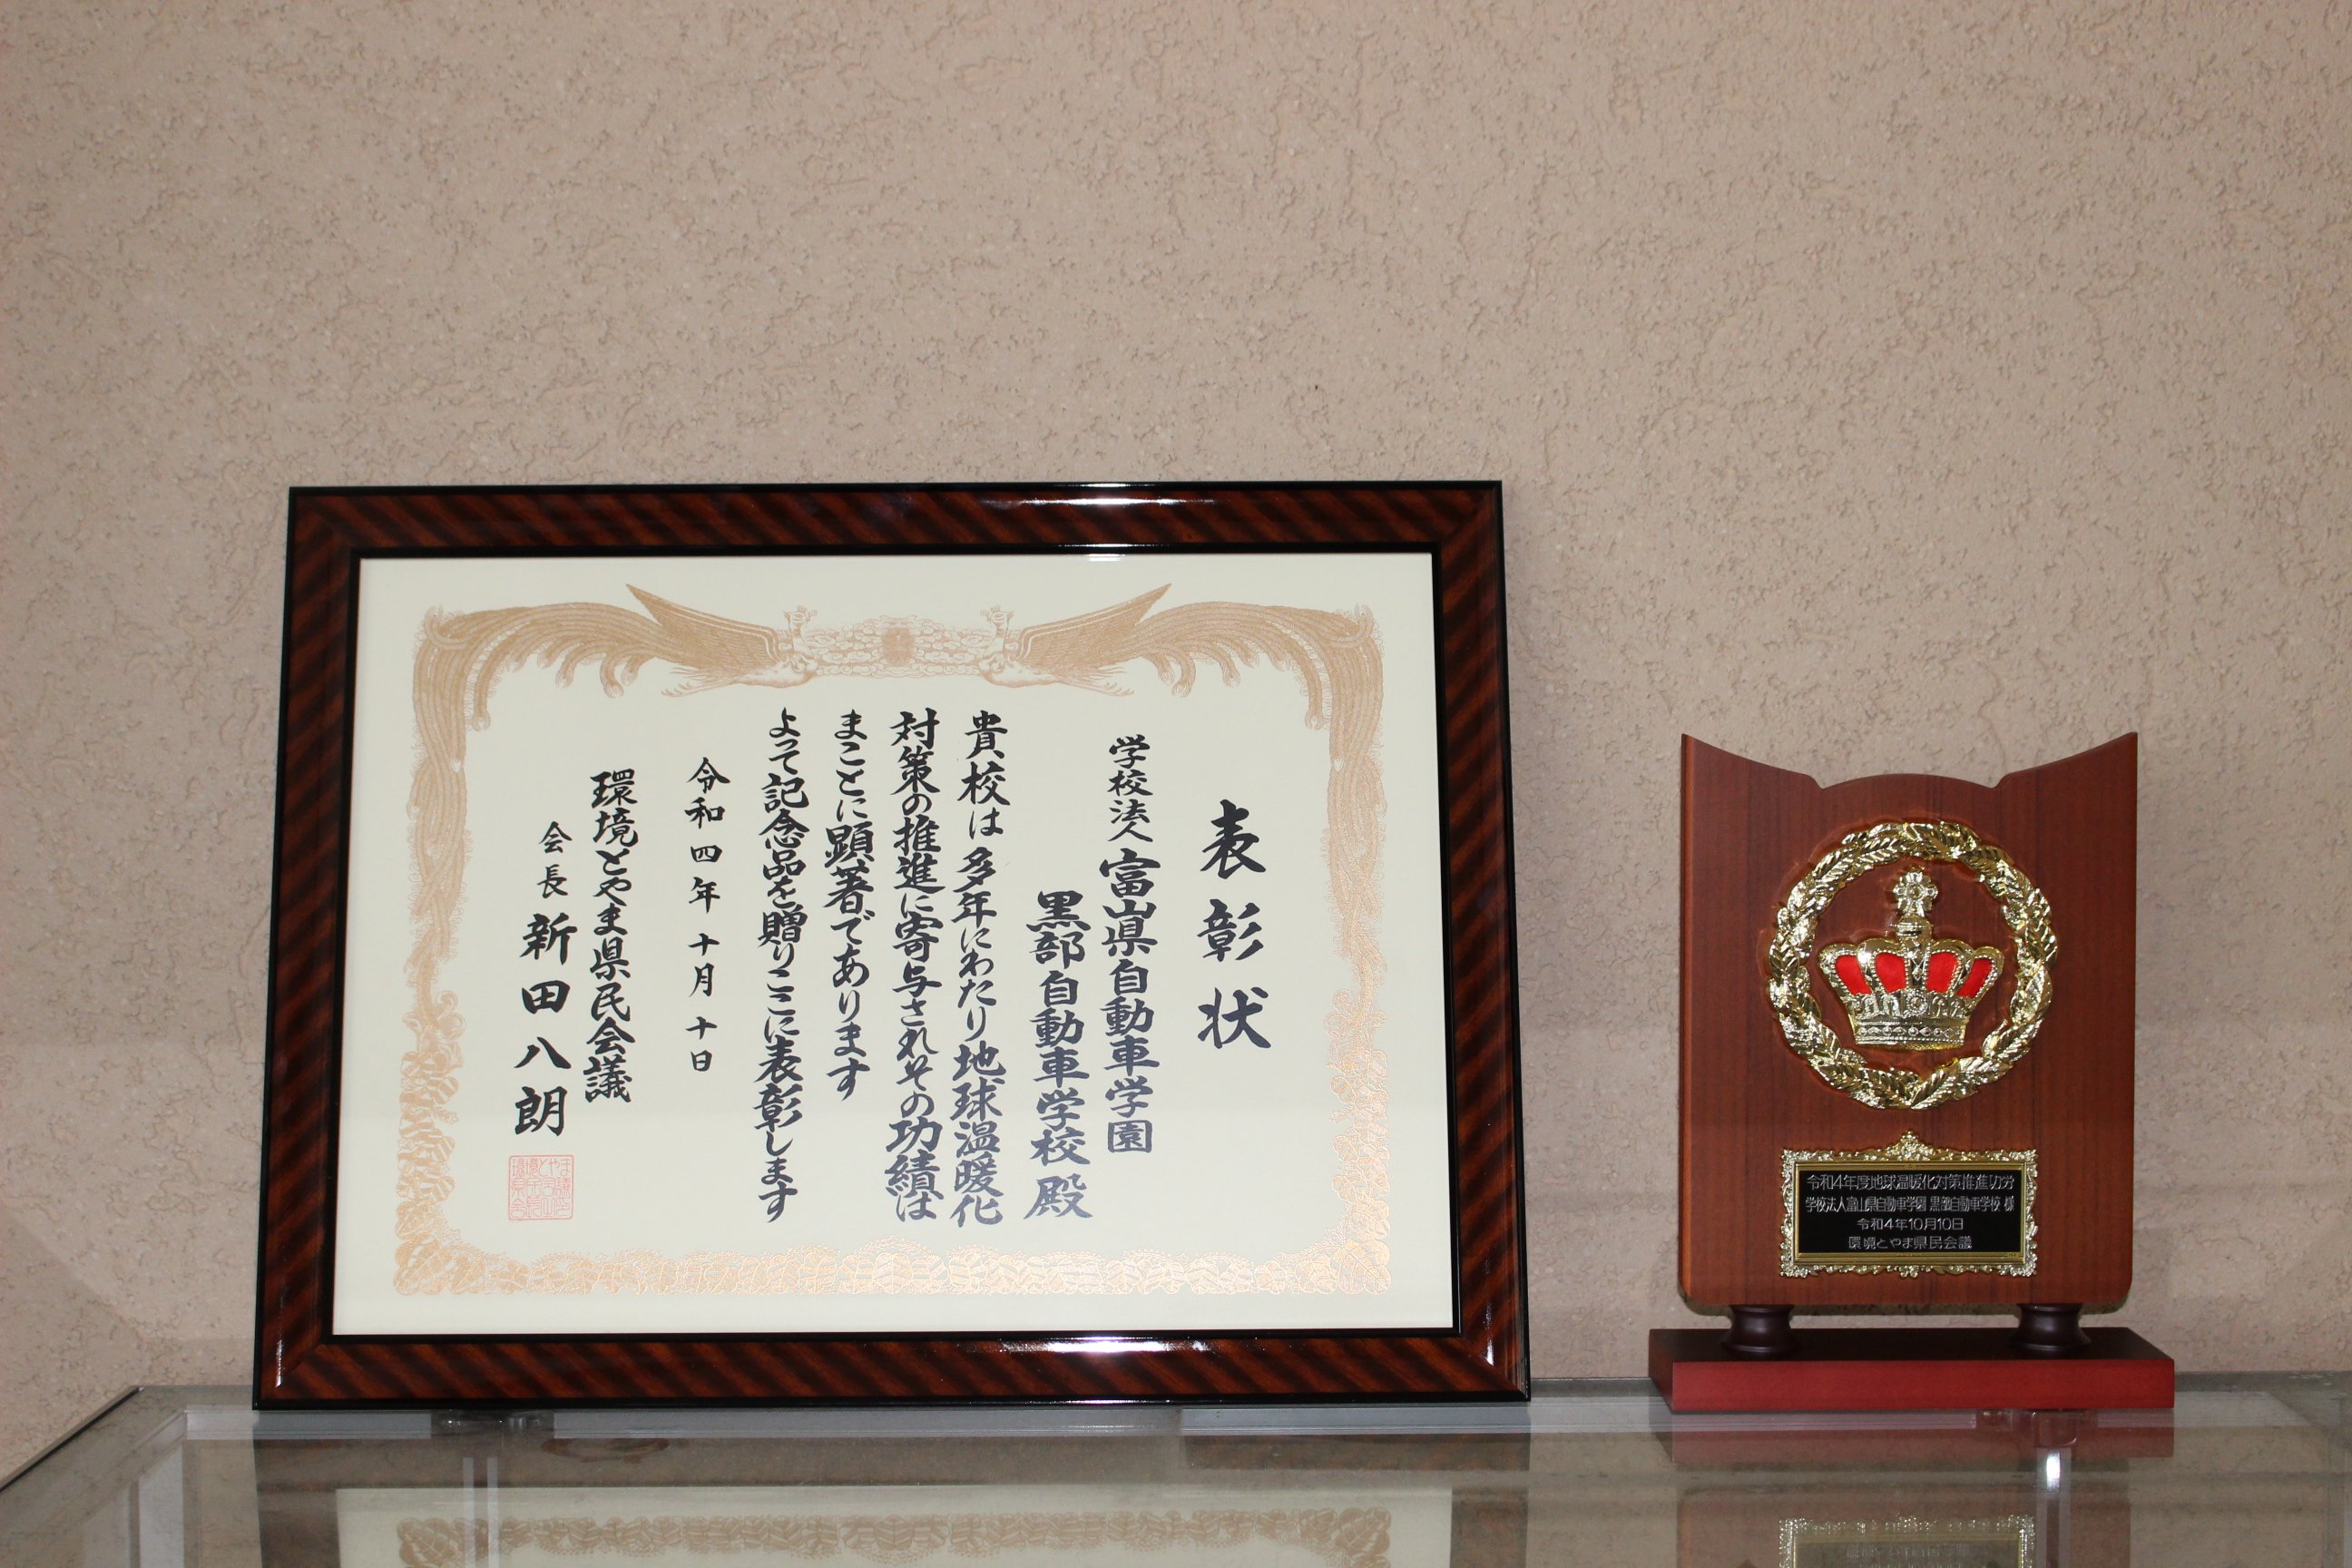 表彰状
学校法人富山県自動車学園
黒部自動車学校殿
貴校は多年にわたり地球温暖化
対策の推進に寄与されその功績は
まことに顕著であります
よって記念品を贈りここに表彰します
令和四年十月十日
環境とやま県民会議
会長 新田八朗
令和4年度地球温暖化対策推進功労
学校法人富山県自動車学園 黒部自動車学校 様
令和4年10月10日
環境とやま県民会議